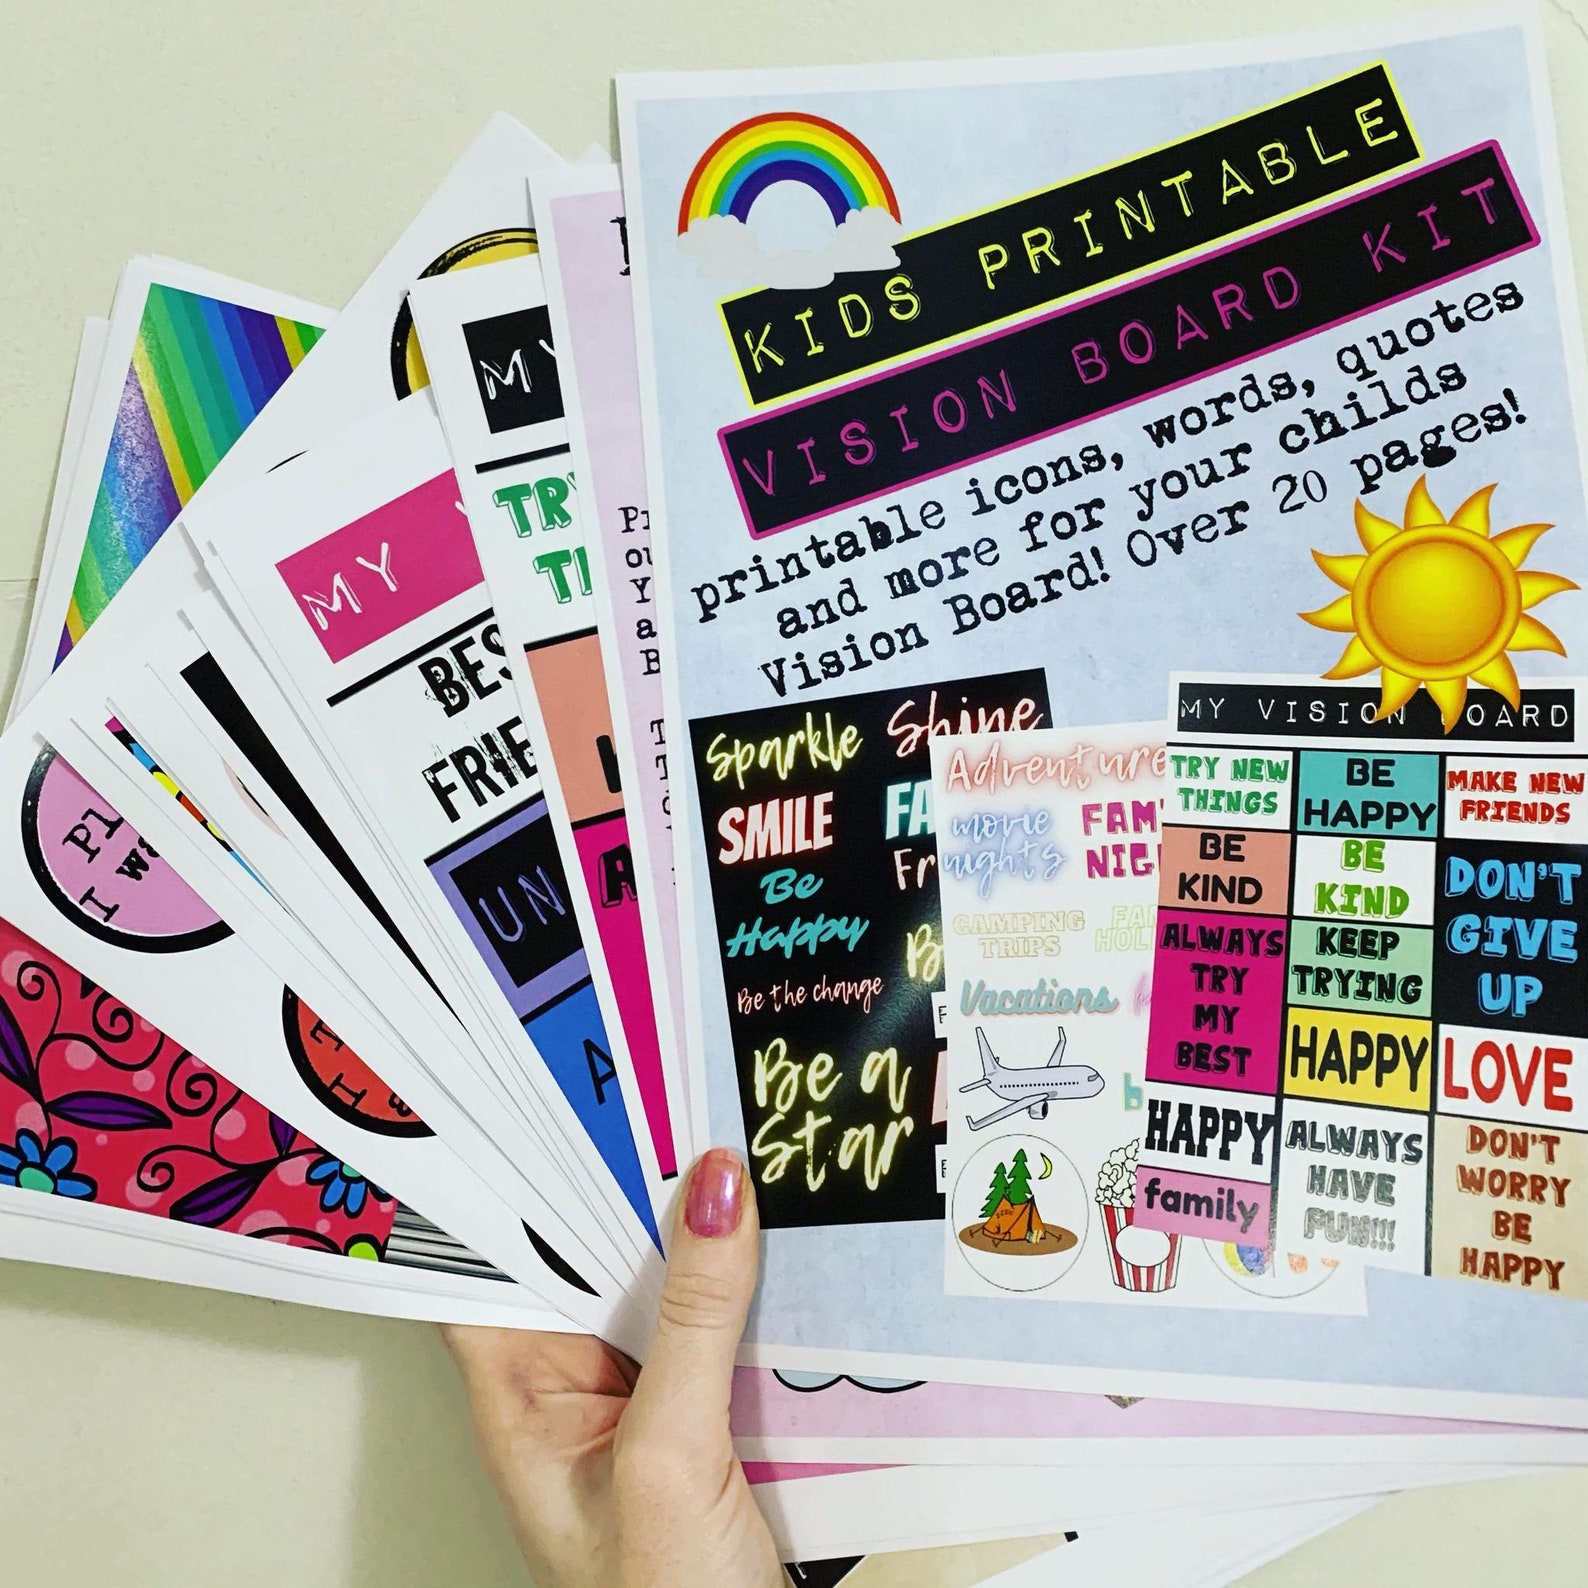 KIDS PRINTABLE
VISION BOARD KIT
printable icons, words, quotes
and more for your childs
Vision Board! Over 20 pages!
Sparkle
Shine
SMILE
Be
Happy
Be the change
Be a
Star
Adventure
movie
nights
CAMPING
TRIPS
Vacations
MY VISION BOARD
TRY NEW
THINGS
BE
HAPPY
MAKE NEW
FRIENDS
BE
KIND
BE
KIND
DON'T
GIVE
UP
ALWAYS
TRY
MY
BEST
KEEP
TRYING
HAPPY
LOVE
HAPPY
family
ALWAYS
HAVE
FUN!!!
DON'T
WORRY
BE
HAPPY
MY
MY